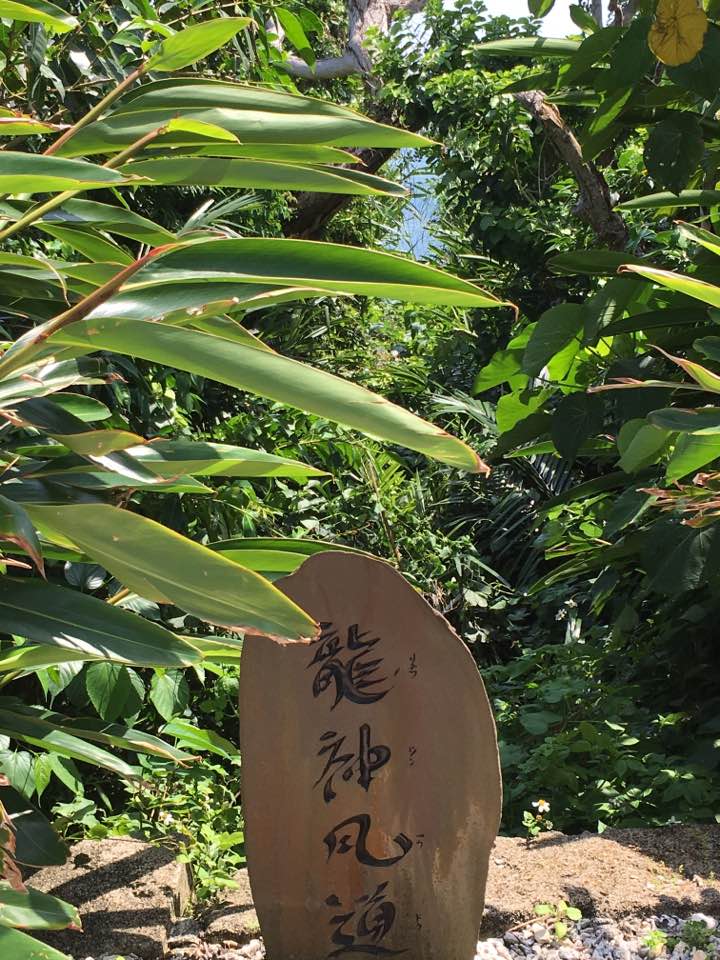 龍神風道